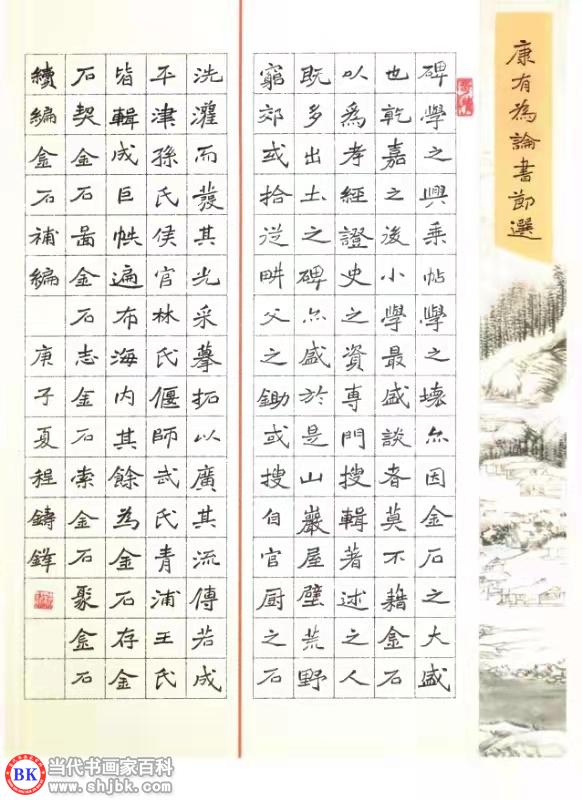 康有為論書節選
碑學之興乘帖學之壞亦因金石之大盛
也乾嘉之後小學最盛談者莫不藉金石
以爲考經證史之資專門搜輯著述之人
既多出土之碑亦盛於是山巖屋壁荒野
窮郊或拾從畊父之鋤或搜自官厨之石
洗濯而發其光采摹拓以廣其流傳若成
平津孫氏侯官林氏偃師武氏青浦王氏
皆輯成巨帙遍布海内其餘為金石存金
石契金石圖金石志金石索金石聚金石
續編金石補編 庚子夏程鑄
BK 当代书画家百科
www.shjbk.com